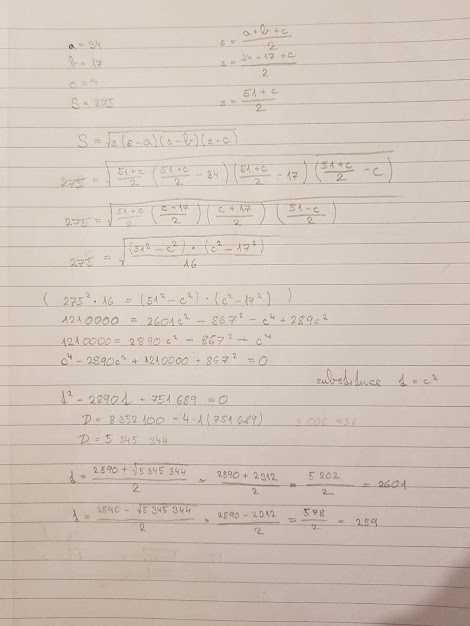 a = 34
s = \frac{a+b+c}{2}
b = 17
s = \frac{34+17+c}{2}
c = ?
s = \frac{51+c}{2}
S = 275
S = \sqrt{s(s-a)(s-b)(s-c)}
275 = \sqrt{\frac{51+c}{2} (\frac{51+c}{2} - 34) (\frac{51+c}{2} - 17) (\frac{51+c}{2} - c)}
275 = \sqrt{\frac{51+c}{2} (\frac{c-17}{2}) (\frac{c+17}{2}) (\frac{51-c}{2})}
275 = \sqrt{\frac{(51² - c²) · (c² - 17²)}{16}}
( 275² · 16 = (51² - c²) · (c² - 17²) )
1210000 = 2601c² - 867² - c⁴ + 289c²
1210000 = 2890c² - 867² - c⁴
c⁴ - 2890c² + 1210000 + 867² = 0
substituce t = c²
t² - 2890t + 751 689 = 0
D = 8 352 100 - 4·1(751 689)
D = 5 345 344
t = \frac{2890 + \sqrt{5 345 344}}{2} = \frac{2890 + 2312}{2} = \frac{5 202}{2} = 2601
t = \frac{2890 - \sqrt{5 345 344}}{2} = \frac{2890 - 2312}{2} = \frac{578}{2} = 289